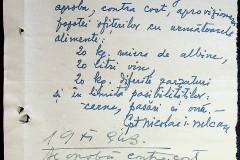 aproba, contra cost, aprovizionarea
popotei ofițerilor cu următoarele
alimente:
20 kg. miere de albine,
20 litri vin,
20 kg. diferite zarzaturi
și în limita posibilităților.
carne, pasări și ouă, —
Cpt Nicolae
19 XI 943.
Se aprobă